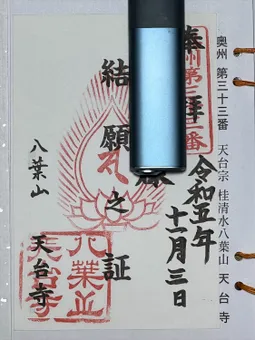 奥州 第三十三番 天台宗 桂清水八葉山 天台寺
奉拝
令和五年
十一月三日
結願之証
八葉山 天台寺
八葉山
天台寺